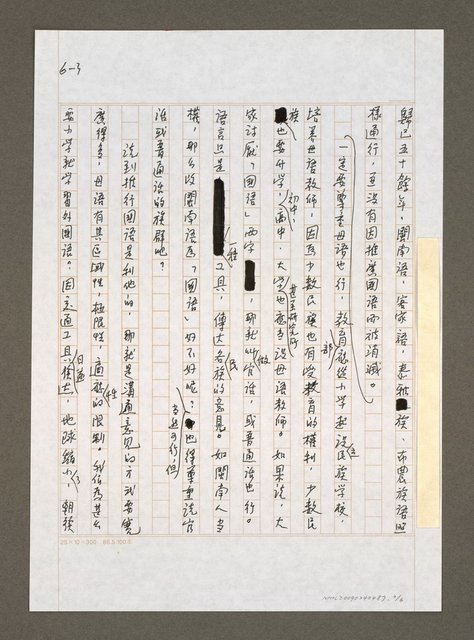 6-3
歸已五十餘年，閩南語，客家語，泰雅族、布農族語照
樣通行，並沒有因推廣國語而被消滅。
一定要尊重母語也行，教育部就從小學起設民族學校，
培養母語教師，因為少數民族也有受教育的權利，少數民
族也要升學，初中、高中、大學也甚至研究所應當設母語教師。如果說，大
家討厭「國語」兩字，那就做官話，或普通話也行。
語言只是一種工具，傳達各族民的意見。如閩南人當
權，那么改閩南語為「國語」好不好呢？當然可行，但也得尊重說官
話或普通話的族群吧？
說到推行國語是利他的，那就是溝通意見的方式要寬
廣得多，母語有其區域性，極限性，適應性的限制。我們為甚么
要小學就學習外國語。因交通工具日益發達，地球縮小了，朝發
25×10=300